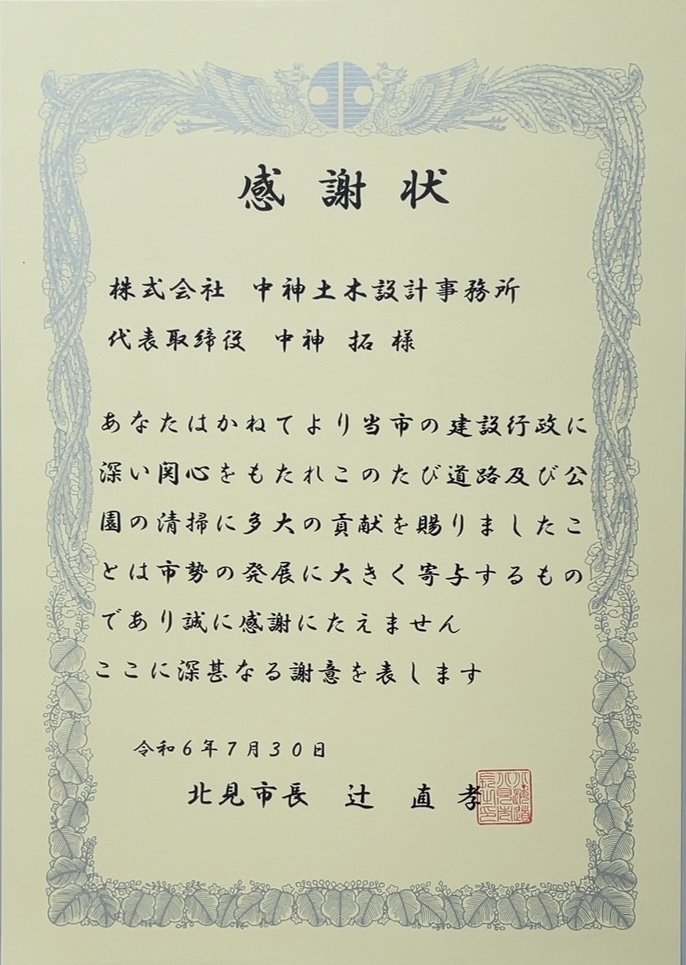 感謝状
株式会社 中神土木設計事務所
代表取締役 中神 拓 様
あなたはかねてより当市の建設行政に
深い関心をもたれこのたび道路及び公
園の清掃に多大の貢献を賜りましたこ
とは市勢の発展に大きく寄与するもの
であり誠に感謝にたえません
ここに深甚なる謝意を表します
令和6年7月30日
北見市長 辻 直 孝